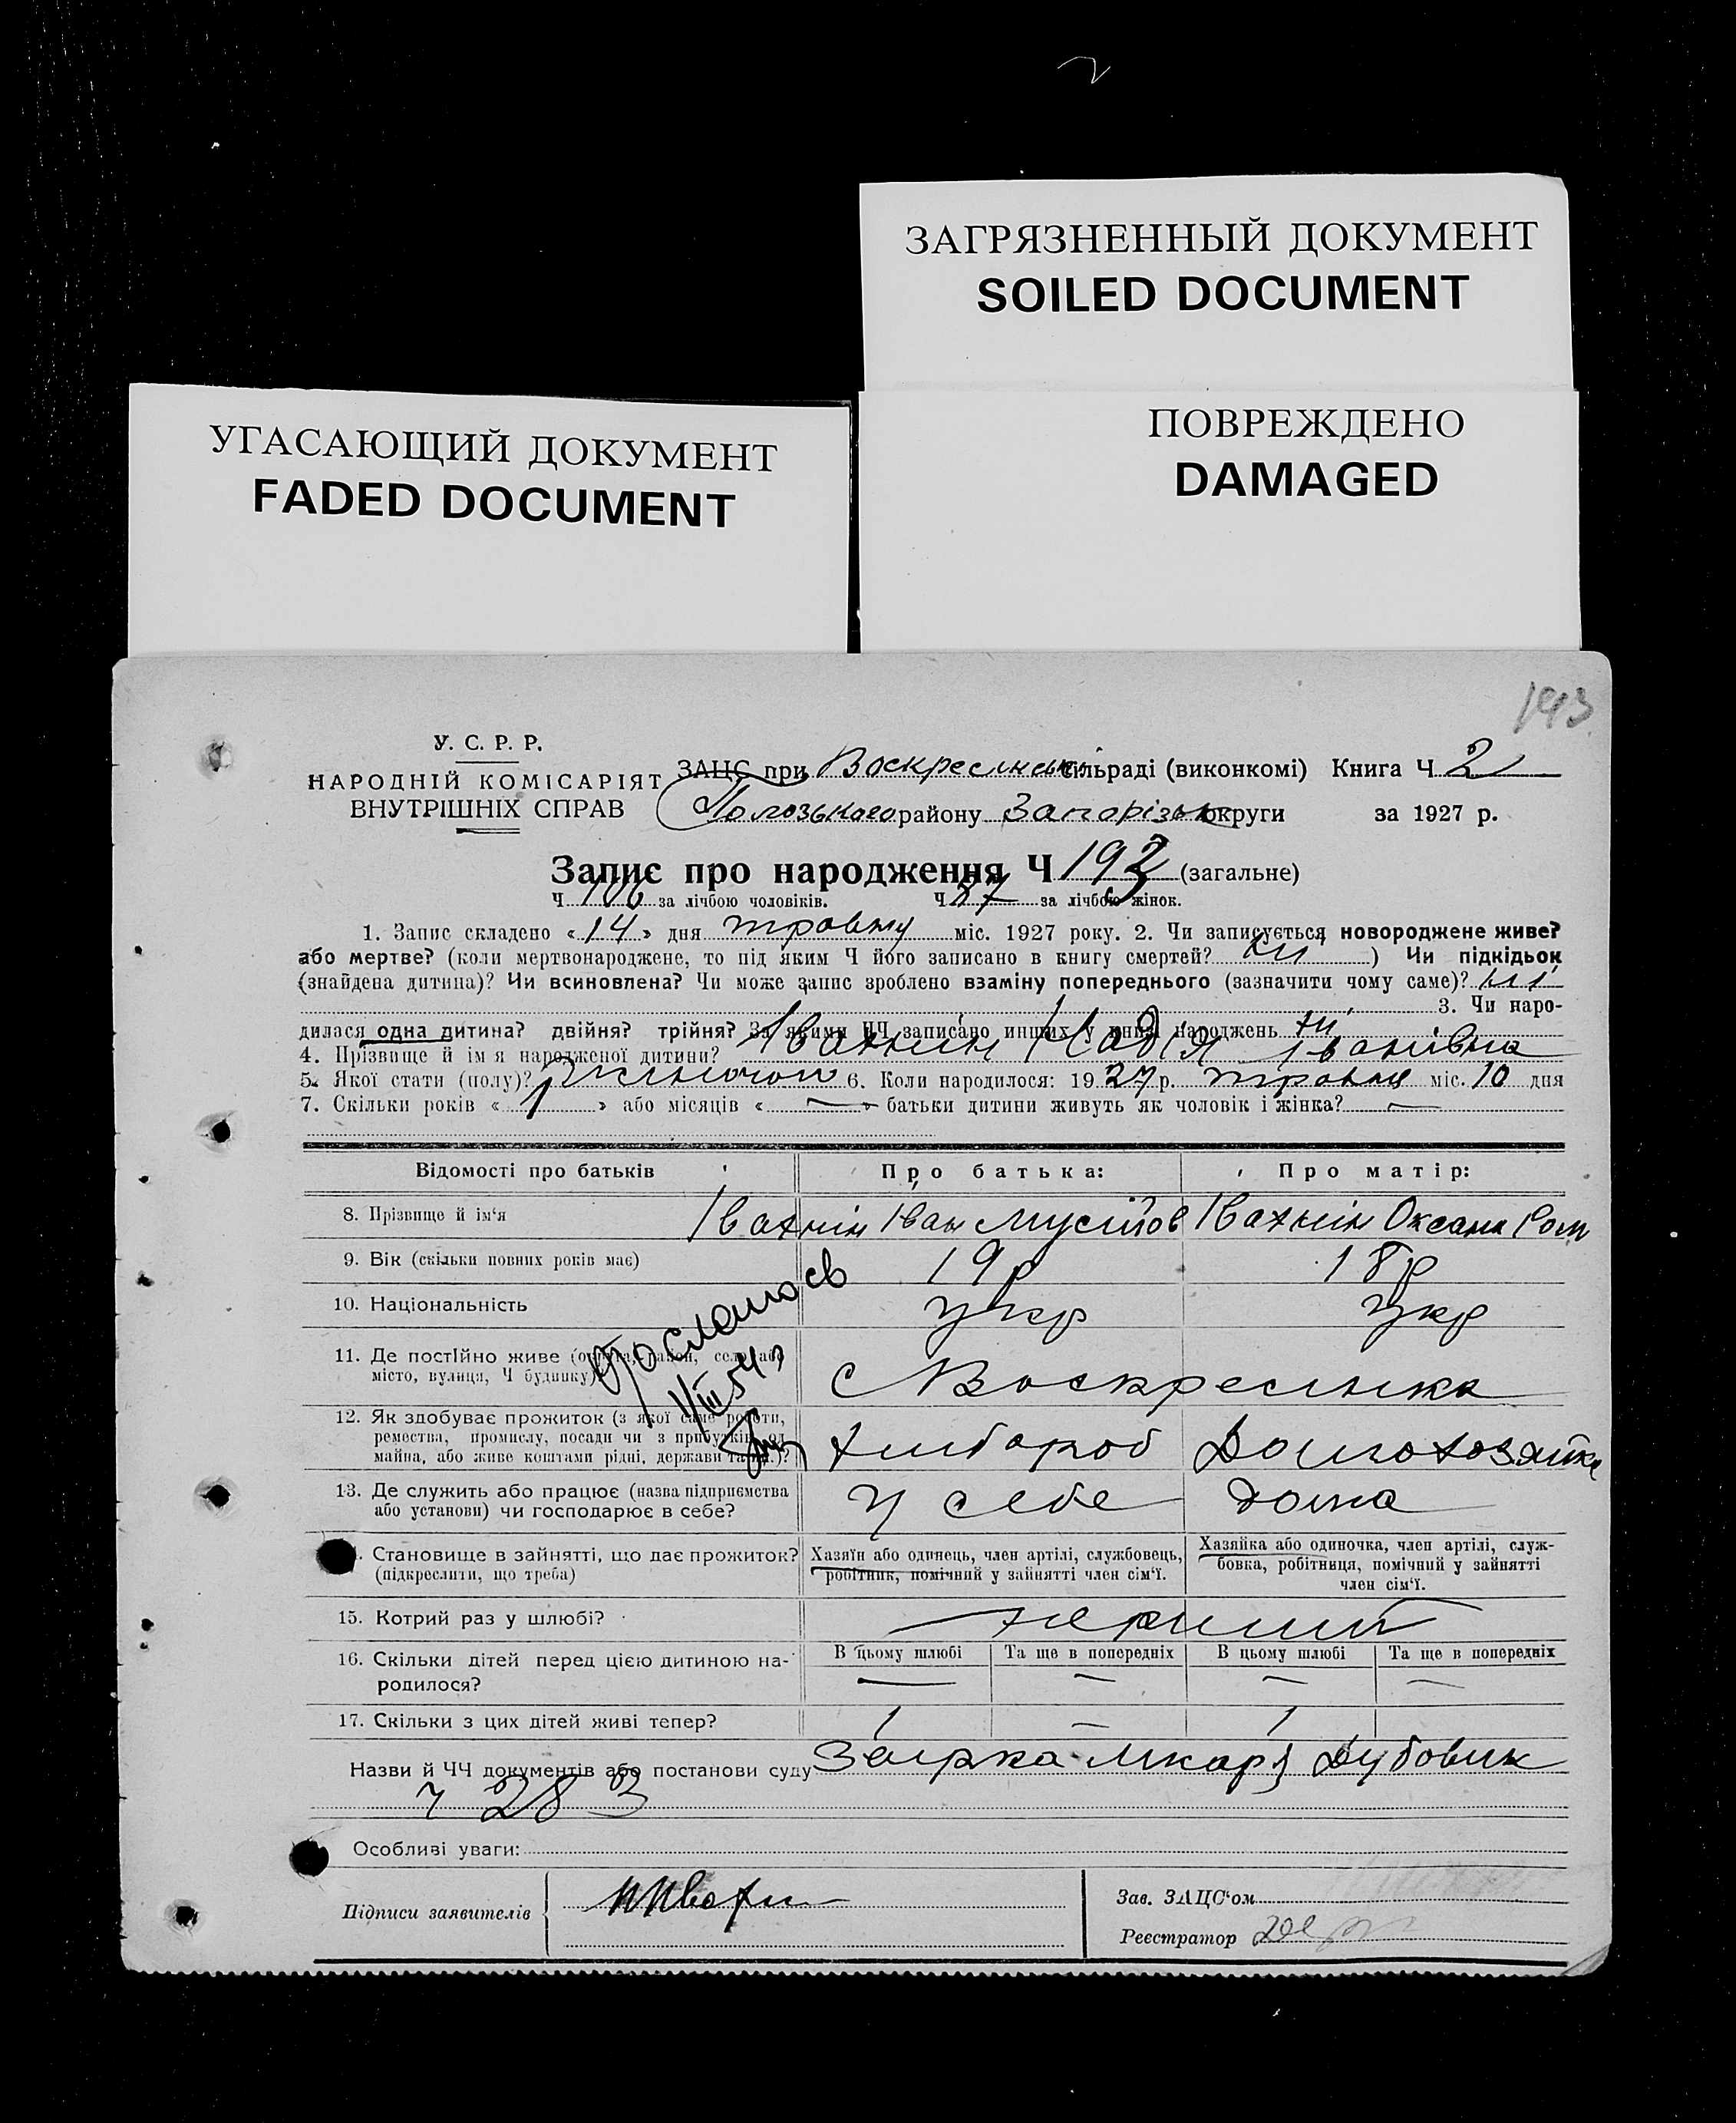 ЗАГРЯЗНЕННЫЙ ДОКУМЕНТ
SOILED DOCUMENT
ПОВРЕЖДЕНО
DAMAGED
УГАСАЮЩИЙ ДОКУМЕНТ
FADED DOCUMENT
193
У. С. Р. Р.
НАРОДНІЙ КОМІСАРІЯТ
ВНУТРІШНІХ СПРАВ
ЗАЦС при Воскресенськ сільраді (виконкомі) Книга Ч 2
Пологського району Запорізьк округи за 1927 р.
Запис про народження Ч 193 (загальне)
Ч 106 за лічбою чоловіків. Ч 87 за лічбою жінок.
1. Запис складено «14» дня травню міс. 1927 року. 2. Чи записується новороджене живе?
або мертве? (коли мертвонароджене, то під яким Ч його записано в книгу смертей? ні ) Чи підкідьок
(знайдена дитина)? Чи всиновлена? Чи може запис зроблено взаміну попереднього (зазначити чому саме)? ні
3. Чи наро-
дилася одна дитина? двійня? трійня? За якими ЧЧ записано инших у книзі народжень ні
4. Прізвище й ім'я народженої дитини? Івахнін Надія Іванівна
5. Якої стати (полу)? жіночої 6. Коли народилося: 1927 р. травня міс. 10 дня
7. Скільки років «1» або місяців «—» батьки дитини живуть як чоловік і жінка? —
Відомості про батьків Про батька: Про матір:
8. Прізвище й ім'я Івахнін Іван Мусійов Івахнін Оксана Ром
9. Вік (скільки повних років має) 19 р 18 р
10. Національність укр укр
11. Де постійно живе (округа, район, село або
місто, вулиця, Ч будинку) с Воскресенка
12. Як здобуває прожиток (з якої саме роботи,
ремества, промислу, посади чи з прибутків од
майна, або живе коштами рідні, держави та ин.)? хлібороб Домохозяйка
13. Де служить або працює (назва підприємства
або установи) чи господарює в себе? у себе дома
Становище в зайнятті, що дає прожиток?
(підкреслити, що треба)
Хазяїн або одинець, член артілі, службовець,
робітник, помічний у зайнятті член сім'ї.
Хазяйка або одиночка, член артілі, служ-
бовка, робітниця, помічний у зайнятті
член сім'ї.
15. Котрий раз у шлюбі? перший
16. Скільки дітей перед цією дитиною на-
родилося?
В цьому шлюбі Та ще в попередніх В цьому шлюбі Та ще в попередніх
— — — —
17. Скільки з цих дітей живі тепер? 1 — 1
Назви й ЧЧ документів або постанови суду Дубовик
ч 283
Особливі уваги:
Підписи заявителів
Зав. ЗАЦС'ом
Реєстратор